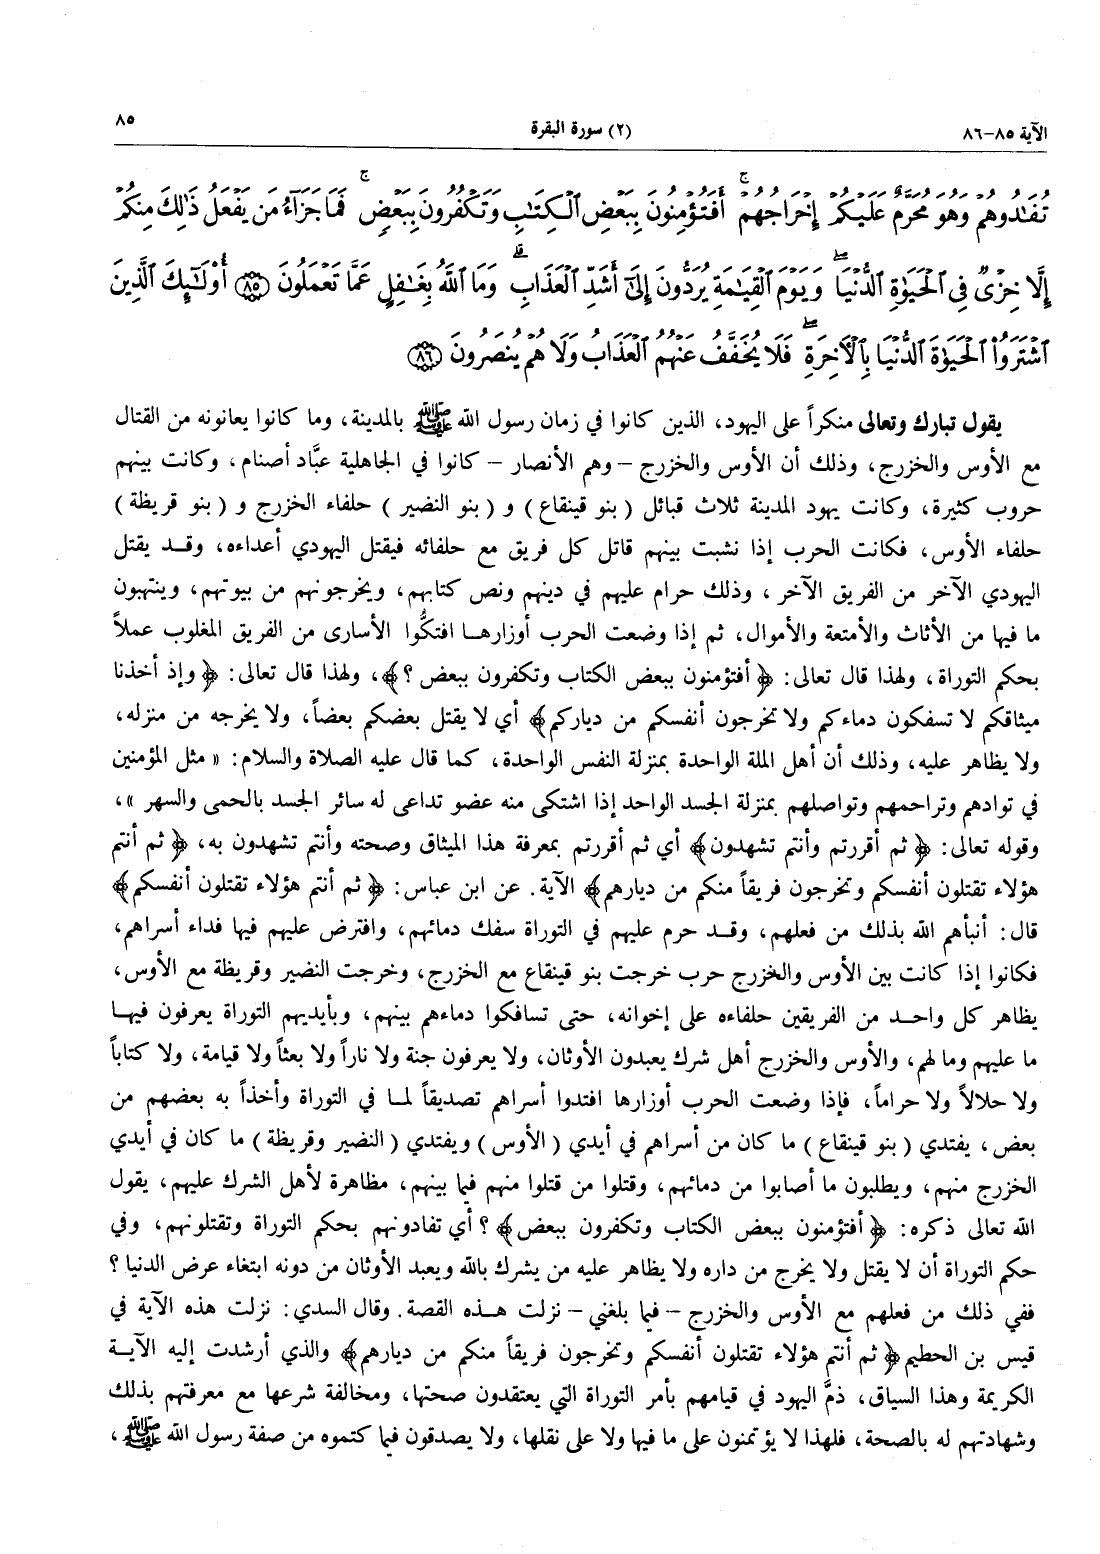 الآية ٨٥-٨٦ (٢) سورة البقرة ٨٥
تُفَـٰدُوهُمْ وَهُوَ مُحَرَّمٌ عَلَيْكُمْ إِخْرَاجُهُمْ ۚ أَفَتُؤْمِنُونَ بِبَعْضِ ٱلْكِتَـٰبِ وَتَكْفُرُونَ بِبَعْضٍ ۚ فَمَا جَزَآءُ مَن يَفْعَلُ ذَٰلِكَ مِنكُمْ
إِلَّا خِزْىٌ فِى ٱلْحَيَوٰةِ ٱلدُّنْيَا ۖ وَيَوْمَ ٱلْقِيَـٰمَةِ يُرَدُّونَ إِلَىٰٓ أَشَدِّ ٱلْعَذَابِ ۗ وَمَا ٱللَّهُ بِغَـٰفِلٍ عَمَّا تَعْمَلُونَ ﴿٨٥﴾ أُو۟لَـٰٓئِكَ ٱلَّذِينَ
ٱشْتَرَوُا۟ ٱلْحَيَوٰةَ ٱلدُّنْيَا بِٱلْـَٔاخِرَةِ ۖ فَلَا يُخَفَّفُ عَنْهُمُ ٱلْعَذَابُ وَلَا هُمْ يُنصَرُونَ ﴿٨٦﴾
يقول تبارك وتعالى منكراً على اليهود، الذين كانوا في زمان رسول الله ﷺ بالمدينة، وما كانوا يعانونه من القتال
مع الأوس والخزرج، وذلك أن الأوس والخزرج – وهم الأنصار – كانوا في الجاهلية عبَّاد أصنام، وكانت بينهم
حروب كثيرة، وكانت يهود المدينة ثلاث قبائل (بنو قينقاع) و (بنو النضير) حلفاء الخزرج و (بنو قريظة)
حلفاء الأوس، فكانت الحرب إذا نشبت بينهم قاتل كل فريق مع حلفائه فيقتل اليهودي أعداءه، وقد يقتل
اليهودي الآخر من الفريق الآخر، وذلك حرام عليهم في دينهم ونص كتابهم، ويخرجونهم من بيوتهم، وينتهبون
ما فيها من الأثاث والأمتعة والأموال، ثم إذا وضعت الحرب أوزارها افتكُّوا الأسارى من الفريق المغلوب عملاً
بحكم التوراة، ولهذا قال تعالى: ﴿أفتؤمنون ببعض الكتاب وتكفرون ببعض؟﴾، ولهذا قال تعالى: ﴿وإذ أخذنا
ميثاقكم لا تسفكون دماءكم ولا تخرجون أنفسكم من دياركم﴾ أي لا يقتل بعضكم بعضاً، ولا يخرجه من منزله،
ولا يظاهر عليه، وذلك أن أهل الملة الواحدة بمنزلة النفس الواحدة، كما قال عليه الصلاة والسلام: «مثل المؤمنين
في توادهم وتراحمهم وتواصلهم بمنزلة الجسد الواحد إذا اشتكى منه عضو تداعى له سائر الجسد بالحمى والسهر»،
وقوله تعالى: ﴿ثم أقررتم وأنتم تشهدون﴾ أي ثم أقررتم بمعرفة هذا الميثاق وصحته وأنتم تشهدون به، ﴿ثم أنتم
هؤلاء تقتلون أنفسكم وتخرجون فريقاً منكم من ديارهم﴾ الآية. عن ابن عباس: ﴿ثم أنتم هؤلاء تقتلون أنفسكم﴾
قال: أنبأهم الله بذلك من فعلهم، وقد حرم عليهم في التوراة سفك دمائهم، وافترض عليهم فيها فداء أسراهم،
فكانوا إذا كانت بين الأوس والخزرج حرب خرجت بنو قينقاع مع الخزرج، وخرجت النضير وقريظة مع الأوس،
يظاهر كل واحد من الفريقين حلفاءه على إخوانه، حتى تسافكوا دماءهم بينهم، وبأيديهم التوراة يعرفون فيها
ما عليهم وما لهم، والأوس والخزرج أهل شرك يعبدون الأوثان، ولا يعرفون جنة ولا ناراً ولا بعثاً ولا قيامة، ولا كتاباً
ولا حلالاً ولا حراماً، فإذا وضعت الحرب أوزارها افتدوا أسراهم تصديقاً لما في التوراة وأخذاً به بعضهم من
بعض، يفتدي (بنو قينقاع) ما كان من أسراهم في أيدي (الأوس) ويفتدي (النضير وقريظة) ما كان في أيدي
الخزرج منهم، ويطلبون ما أصابوا من دمائهم، وقتلوا من قتلوا منهم فيما بينهم، مظاهرة لأهل الشرك عليهم، يقول
الله تعالى ذكره: ﴿أفتؤمنون ببعض الكتاب وتكفرون ببعض﴾؟ أي تفادونهم بحكم التوراة وتقتلونهم، وفي
حكم التوراة أن لا يقتل ولا يخرج من داره ولا يظاهر عليه من يشرك بالله ويعبد الأوثان من دونه ابتغاء عرض الدنيا؟
ففي ذلك من فعلهم مع الأوس والخزرج – فيما بلغني – نزلت هذه القصة. وقال السدي: نزلت هذه الآية في
قيس بن الحطيم ﴿ثم أنتم هؤلاء تقتلون أنفسكم وتخرجون فريقاً منكم من ديارهم﴾ والذي أرشدت إليه الآية
الكريمة وهذا السياق، ذمَّ اليهود في قيامهم بأمر التوراة التي يعتقدون صحتها، ومخالفة شرعها مع معرفتهم بذلك
وشهادتهم له بالصحة، فلهذا لا يؤتمنون على ما فيها ولا على نقلها، ولا يصدقون فيما كتموه من صفة رسول الله ﷺ،